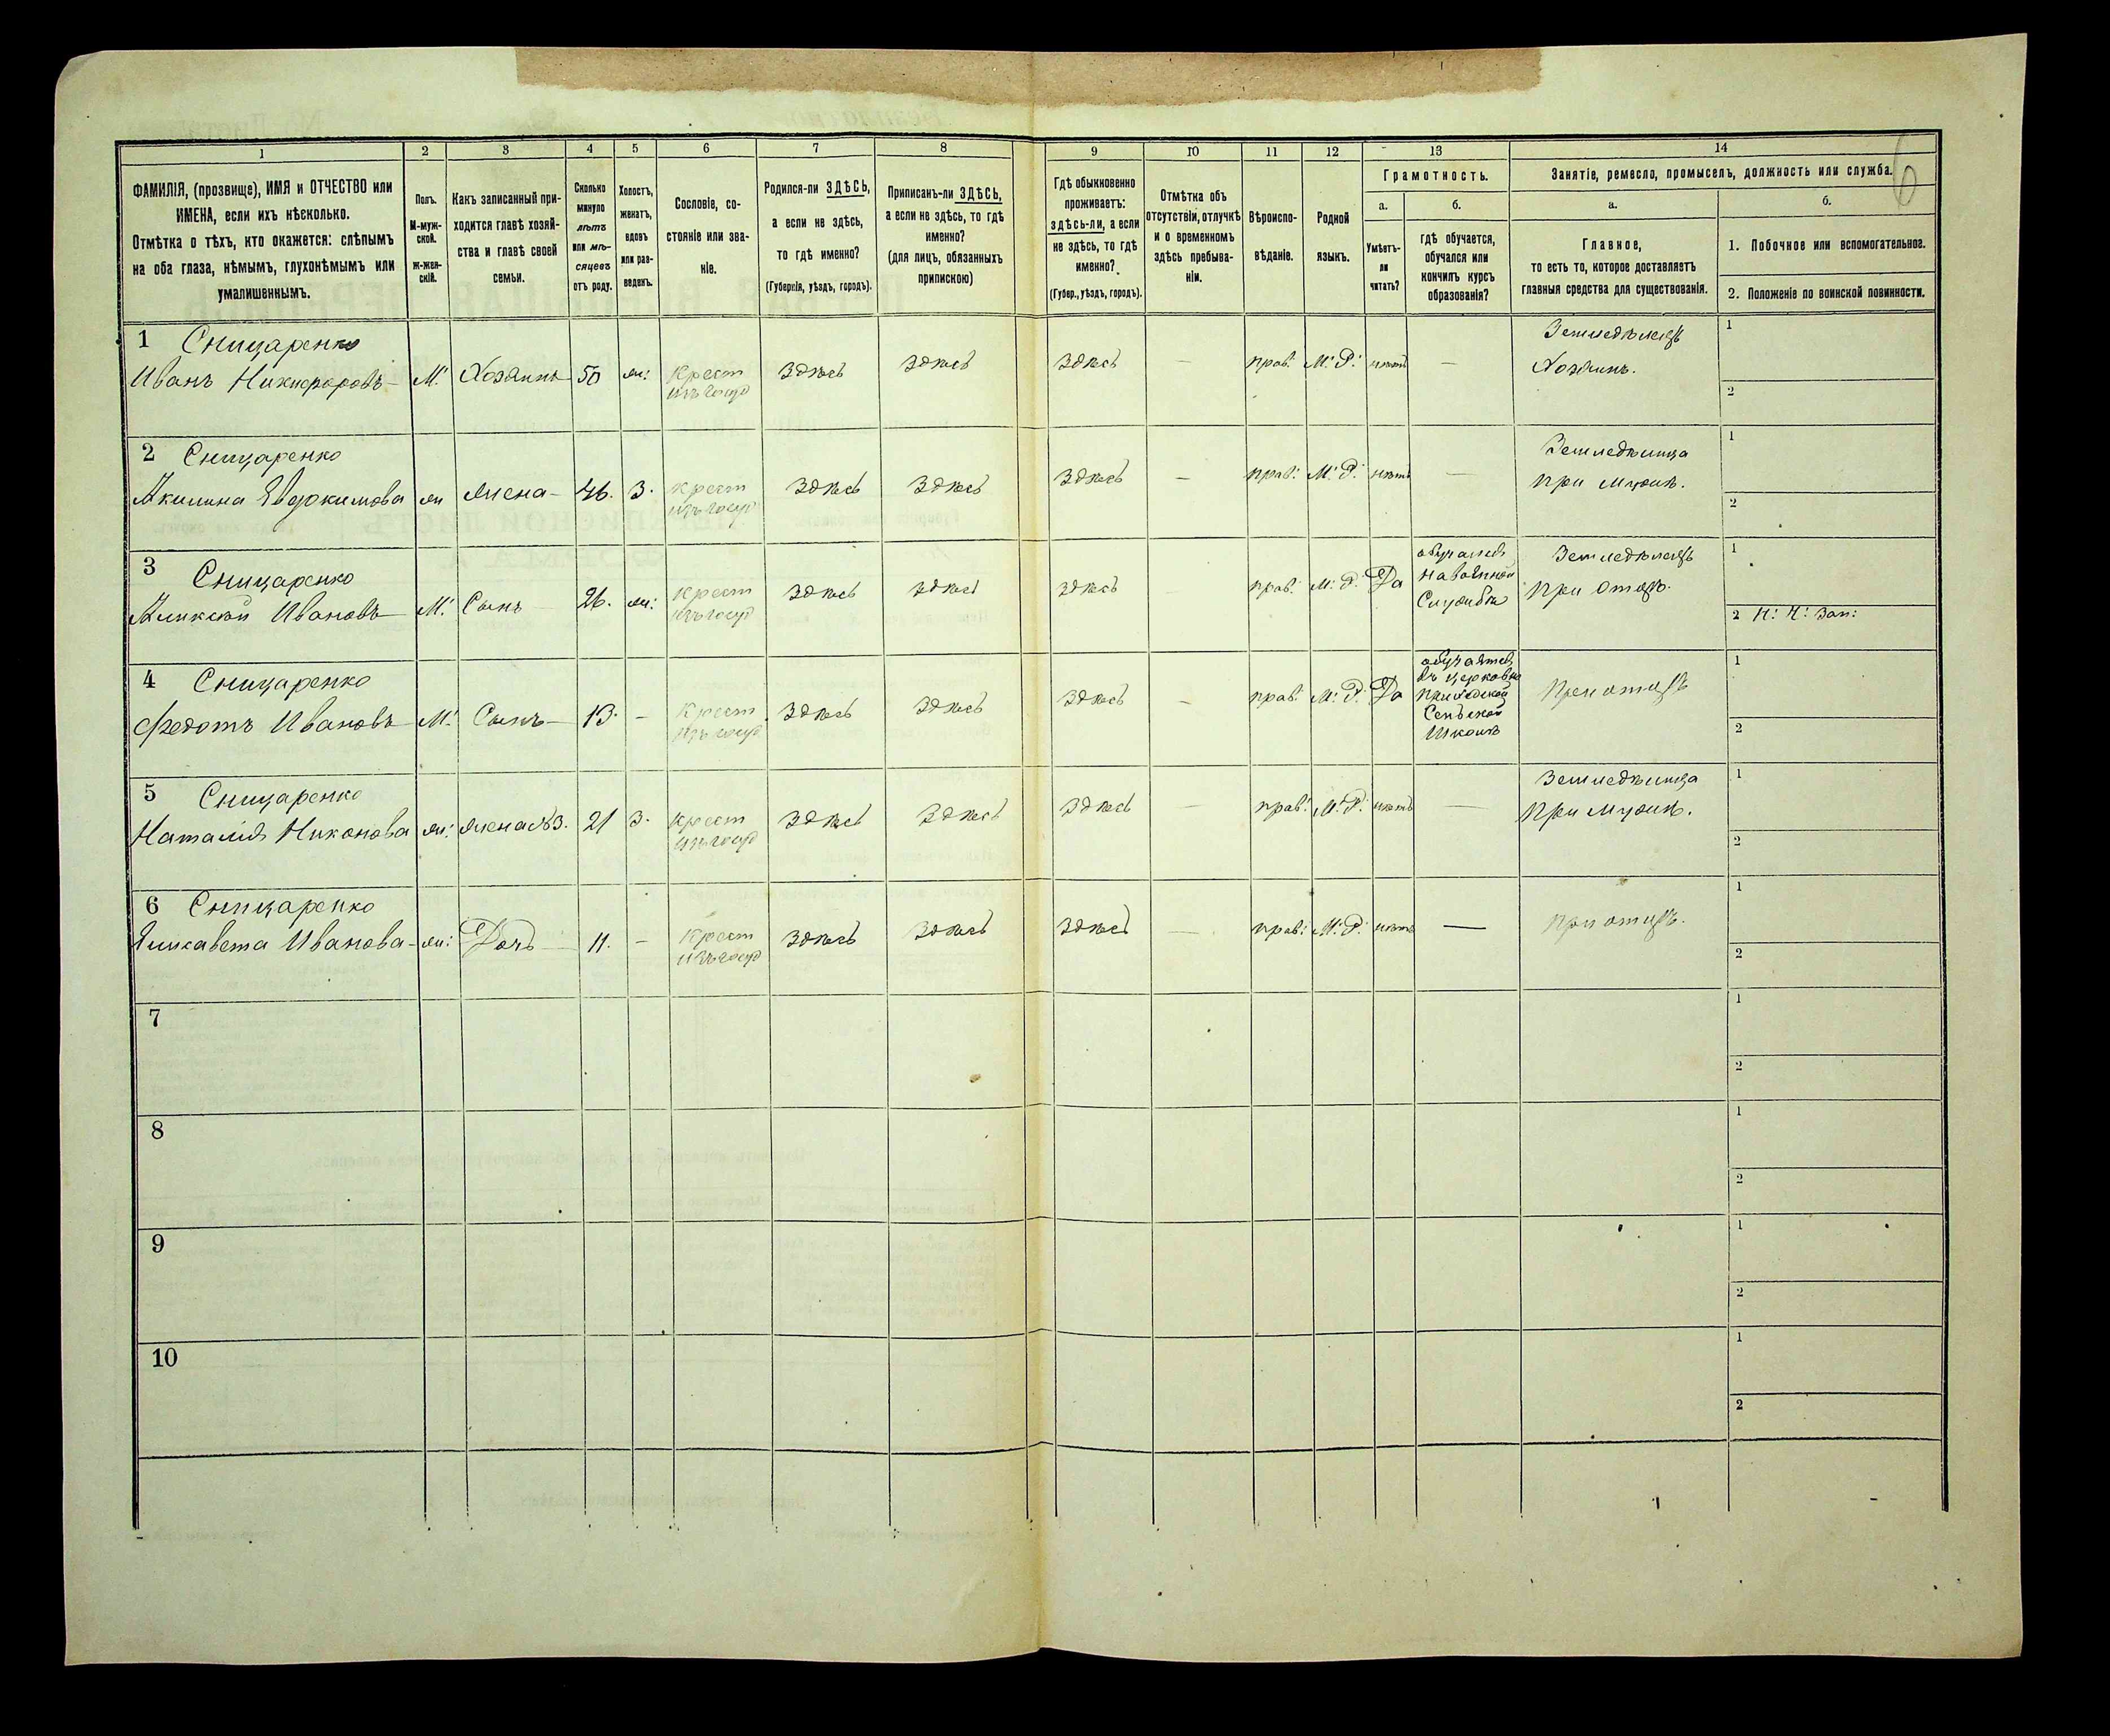 6
1 2 3 4 5 6 7 8 9 10 11 12 13 14
ФАМИЛІЯ, (прозвище), ИМЯ и ОТЧЕСТВО или
ИМЕНА, если ихъ нѣсколько.
Отмѣтка о тѣхъ, кто окажется: слѣпымъ
на оба глаза, нѣмымъ, глухонѣмымъ или
умалишеннымъ.
Полъ.
М-муж-
ской.
Ж-жен-
скій.
Какъ записанный при-
ходится главѣ хозяй-
ства и главѣ своей
семьи.
Сколько
минуло
лѣтъ
или мѣ-
сяцевъ
отъ роду.
Холостъ,
женатъ,
вдовъ
или раз-
веденъ.
Сословіе, со-
стояніе или зва-
ніе.
Родился-ли ЗДѢСЬ,
а если не здѣсь,
то гдѣ именно?
(Губернія, уѣздъ, городъ).
Приписанъ-ли ЗДѢСЬ,
а если не здѣсь, то гдѣ
именно?
(для лицъ, обязанныхъ
припискою)
Гдѣ обыкновенно
проживаетъ:
здѣсь-ли, а если
не здѣсь, то гдѣ
именно?
(Губер., уѣздъ, городъ).
Отмѣтка объ
отсутствіи, отлучкѣ
и о временномъ
здѣсь пребыва-
ніи.
Вѣроиспо-
вѣданіе.
Родной
языкъ.
Грамотность.
а.
Умѣетъ-
ли
читать?
б.
гдѣ обучается,
обучался или
кончилъ курсъ
образованія?
Занятіе, ремесло, промыселъ, должность или служба.
а.
Главное,
то есть то, которое доставляетъ
главныя средства для существованія.
б.
1. Побочное или вспомогательное.
2. Положеніе по воинской повинности.
1 Сницаренко
Иванъ Никифоровъ М. Хозяинъ 50 ж: Крест изъ госуд здѣсь здѣсь здѣсь — прав: М: Р: нѣтъ —
Земледѣлецъ
Хозяинъ.
1
2
2 Сницаренко
Акилина Евдокимова ж жена 46. З. крест изъ госуд здѣсь здѣсь здѣсь — прав: М: Р: нѣтъ —
Земледѣлица
при мужѣ.
1
2
3 Сницаренко
Аликсѣй Ивановъ М. Сынъ 26. ж: Крест изъ госуд здѣсь здѣсь здѣсь — прав: М: Р: Да
обучался
на военной
Службѣ
Земледѣлецъ
при отцѣ.
1
2
4 Сницаренко
Федотъ Ивановъ М. Сынъ 13. — Крест изъ госуд здѣсь здѣсь здѣсь — прав: М: Р: Да
обучается
въ церковно
приходской
Сельской
Школѣ
при отцѣ
1
2
5 Сницаренко
Наталія Никонова ж: жена №3. 21 З. крест изъ госуд здѣсь здѣсь здѣсь — прав: М: Р: нѣтъ —
Земледѣлица
при мужѣ.
1
2
6 Сницаренко
Елисавета Иванова ж: Дочь 11. — Крест изъ госуд здѣсь здѣсь здѣсь — прав: М: Р: нѣтъ —
при отцѣ.
1
2
7
1
2
8
1
2
9
1
2
10
1
2